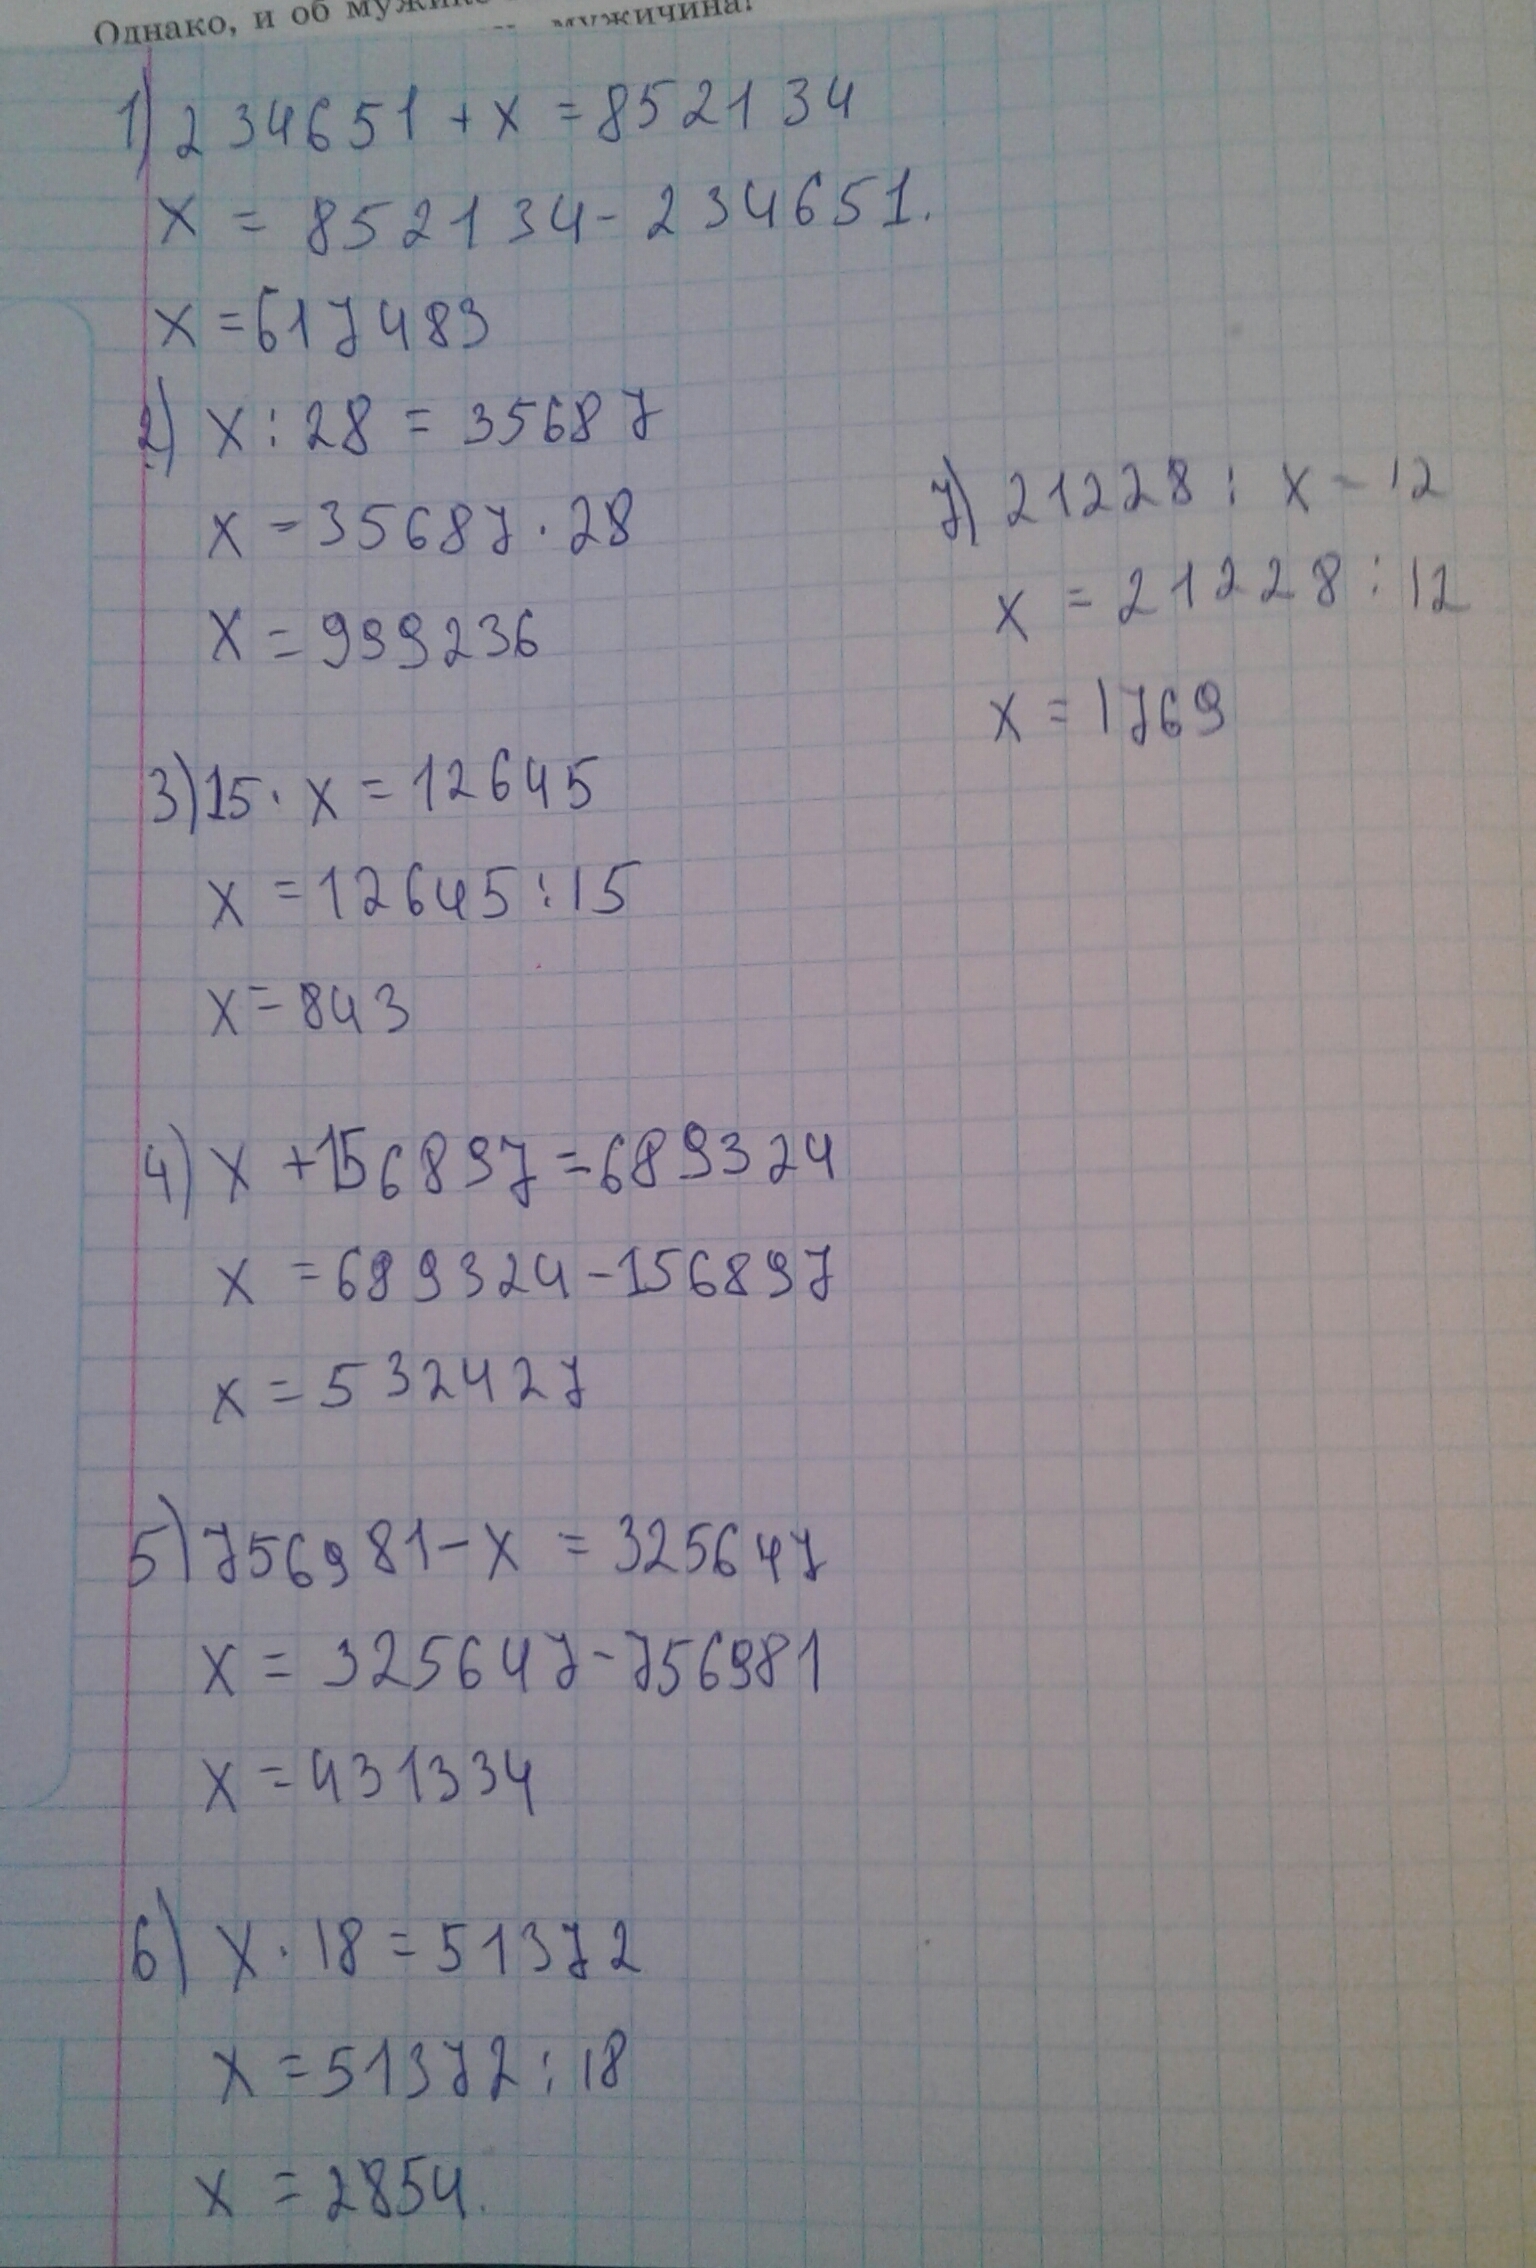 Однако, и об мужик
мужичина!
1) 234651 + x = 852134
x = 852134 - 234651.
x = 617483
2) x : 28 = 35687
x = 35687 · 28
x = 999236
3) 15 · x = 12645
x = 12645 : 15
x = 843
4) x + 156897 = 689324
x = 689324 - 156897
x = 532427
5) 756981 - x = 325647
x = 325647 - 756981
x = 431334
6) x · 18 = 51372
x = 51372 : 18
x = 2854.
7) 21228 : x = 12
x = 21228 : 12
x = 1769